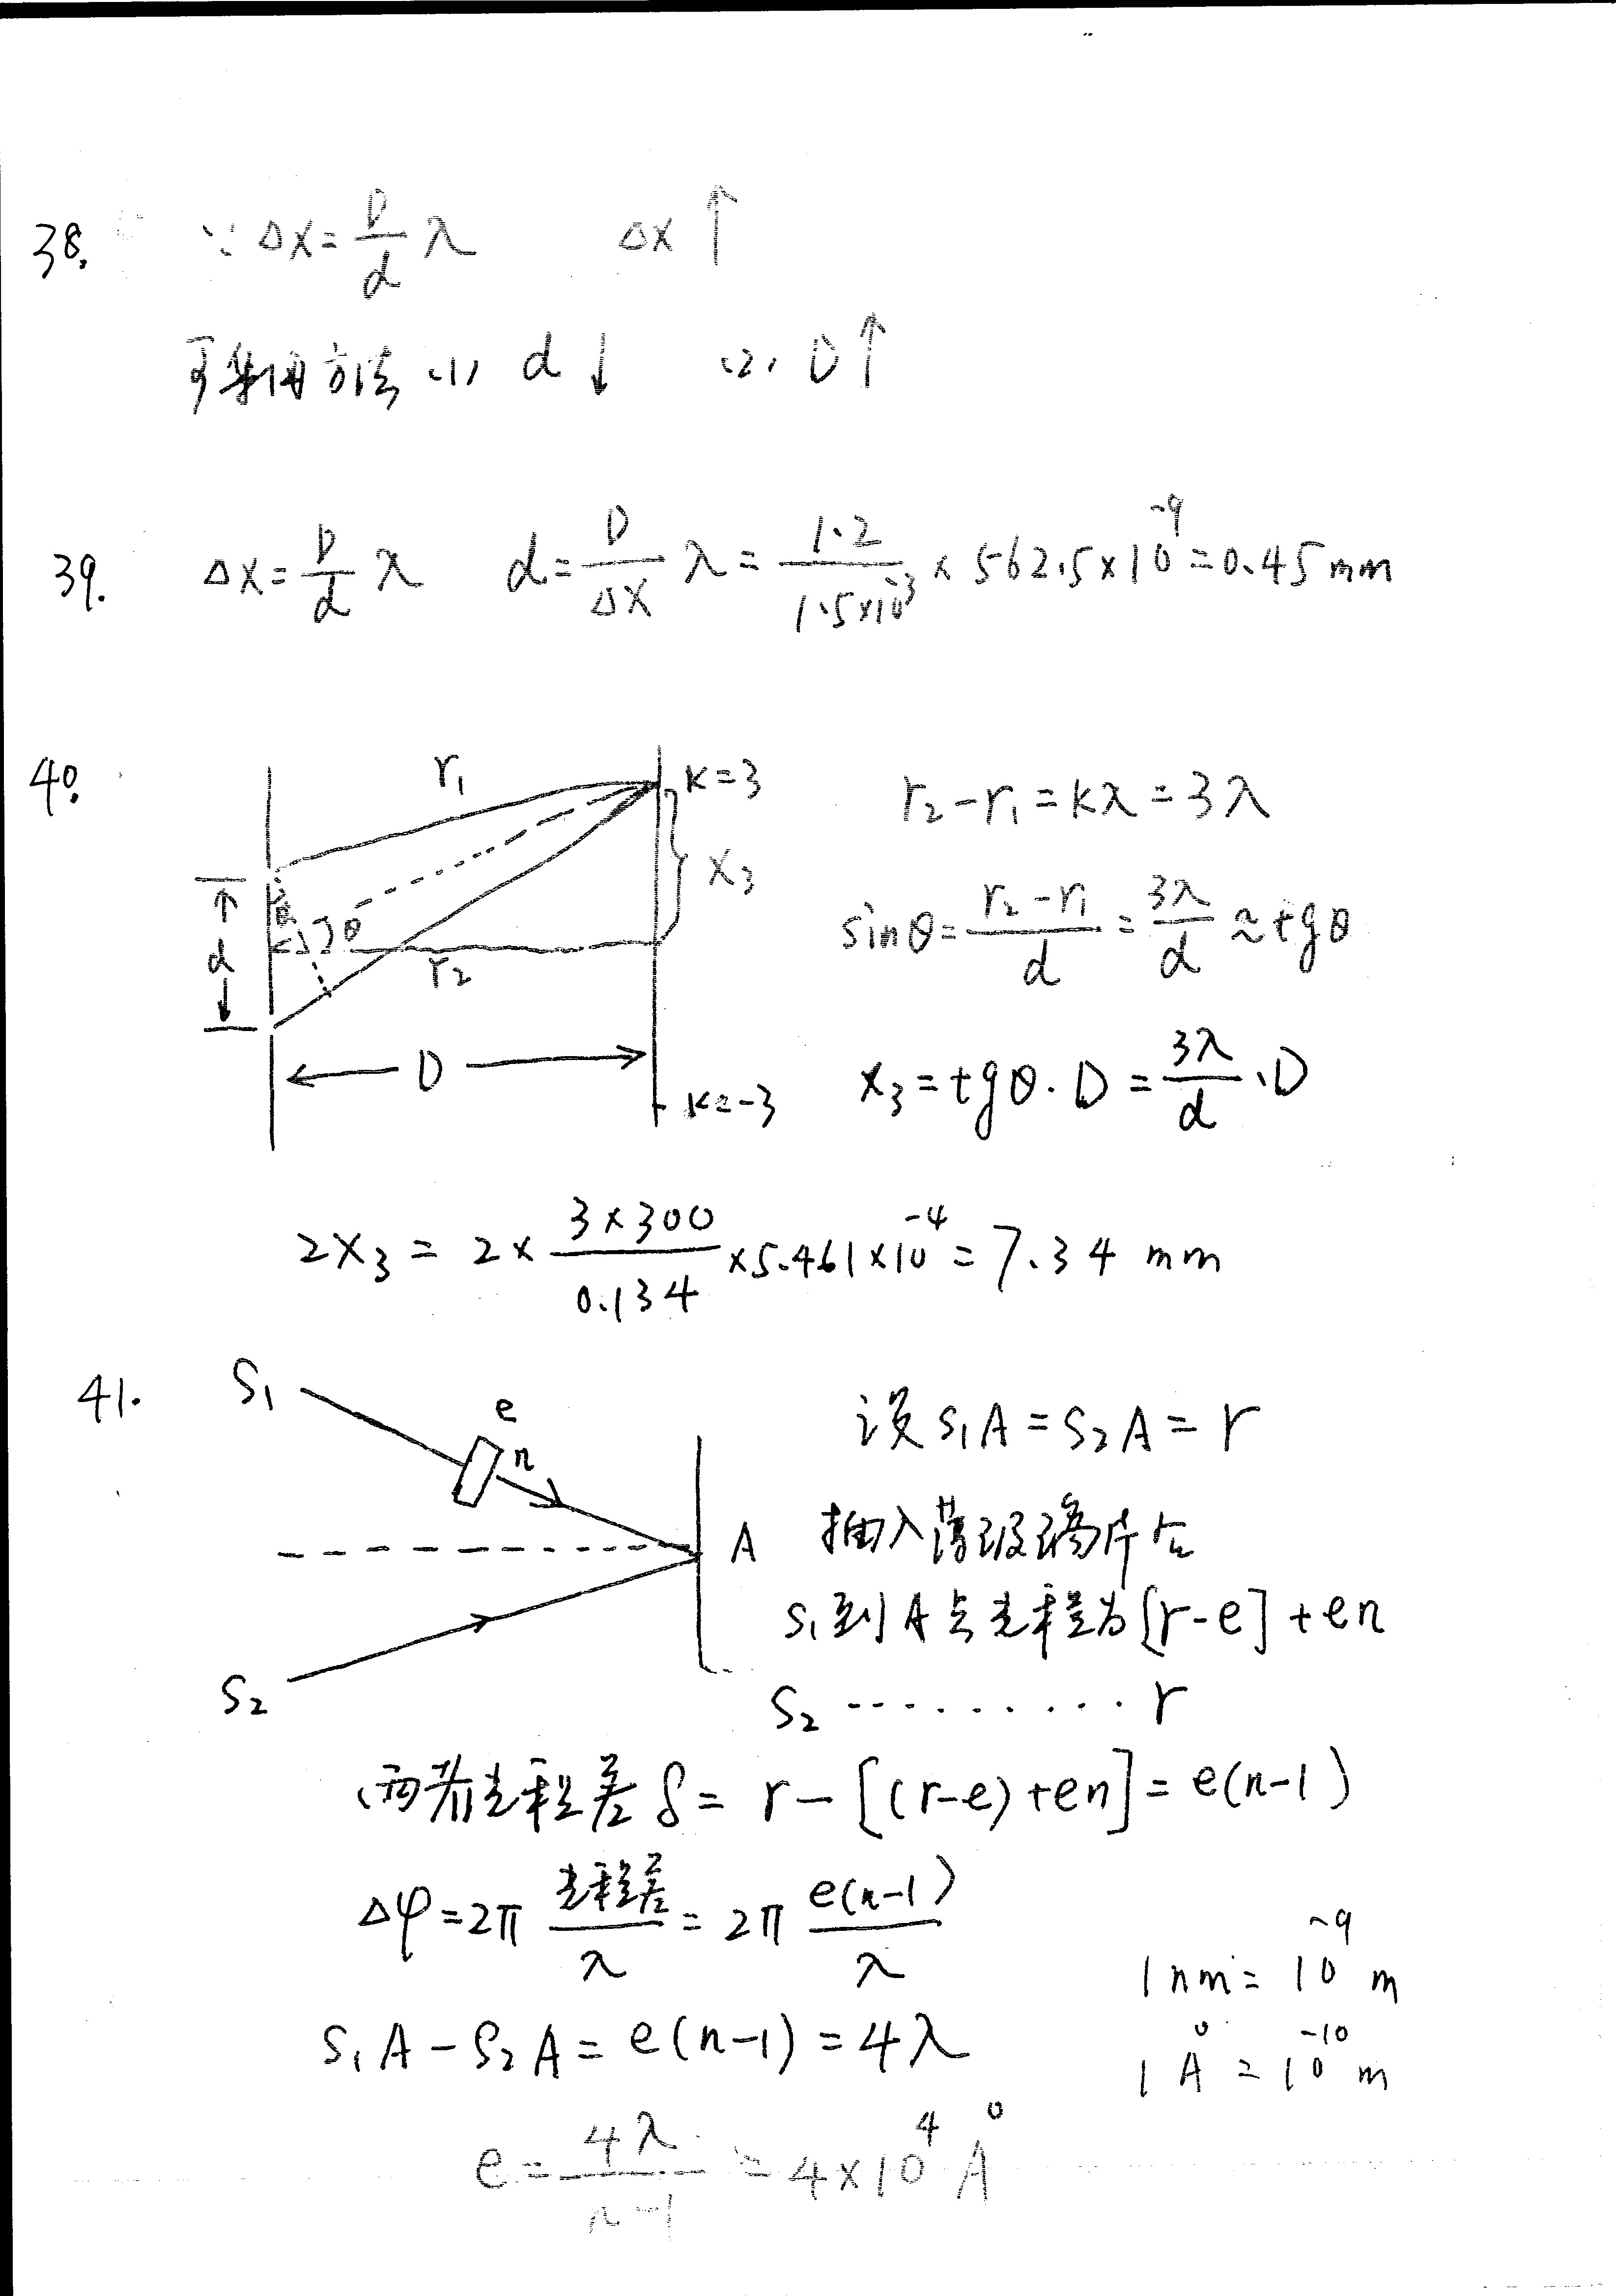 38. ∵ Δx = D/d λ Δx ↑
可采用方法 (1) d ↓ (2) D ↑
39. Δx = D/d λ d = D/Δx λ = 1.2/1.5×10⁻³ × 562.5×10⁻⁹ = 0.45 mm
40.
r₁
k=3
x₃
θ
θ
d
r₂
D
k=-3
r₂-r₁ = kλ = 3λ
sinθ = r₂-r₁/d = 3λ/d ≈ tgθ
x₃ = tgθ · D = 3λ/d · D
2x₃ = 2 × 3×300/0.134 × 5.461×10⁻⁴ = 7.34 mm
41.
S₁
e
n
A
S₂
设 S₁A = S₂A = r
插入薄玻璃片后
S₁到A点光程为[r-e]+en
S₂ ·········· r
两者光程差 δ = r - [(r-e)+en] = e(n-1)
Δφ = 2π 光程差/λ = 2π e(n-1)/λ
1nm = 10⁻⁹ m
S₁A - S₂A = e(n-1) = 4λ
1 Å = 10⁻¹⁰ m
e = 4λ/n-1 = 4×10⁴ Å